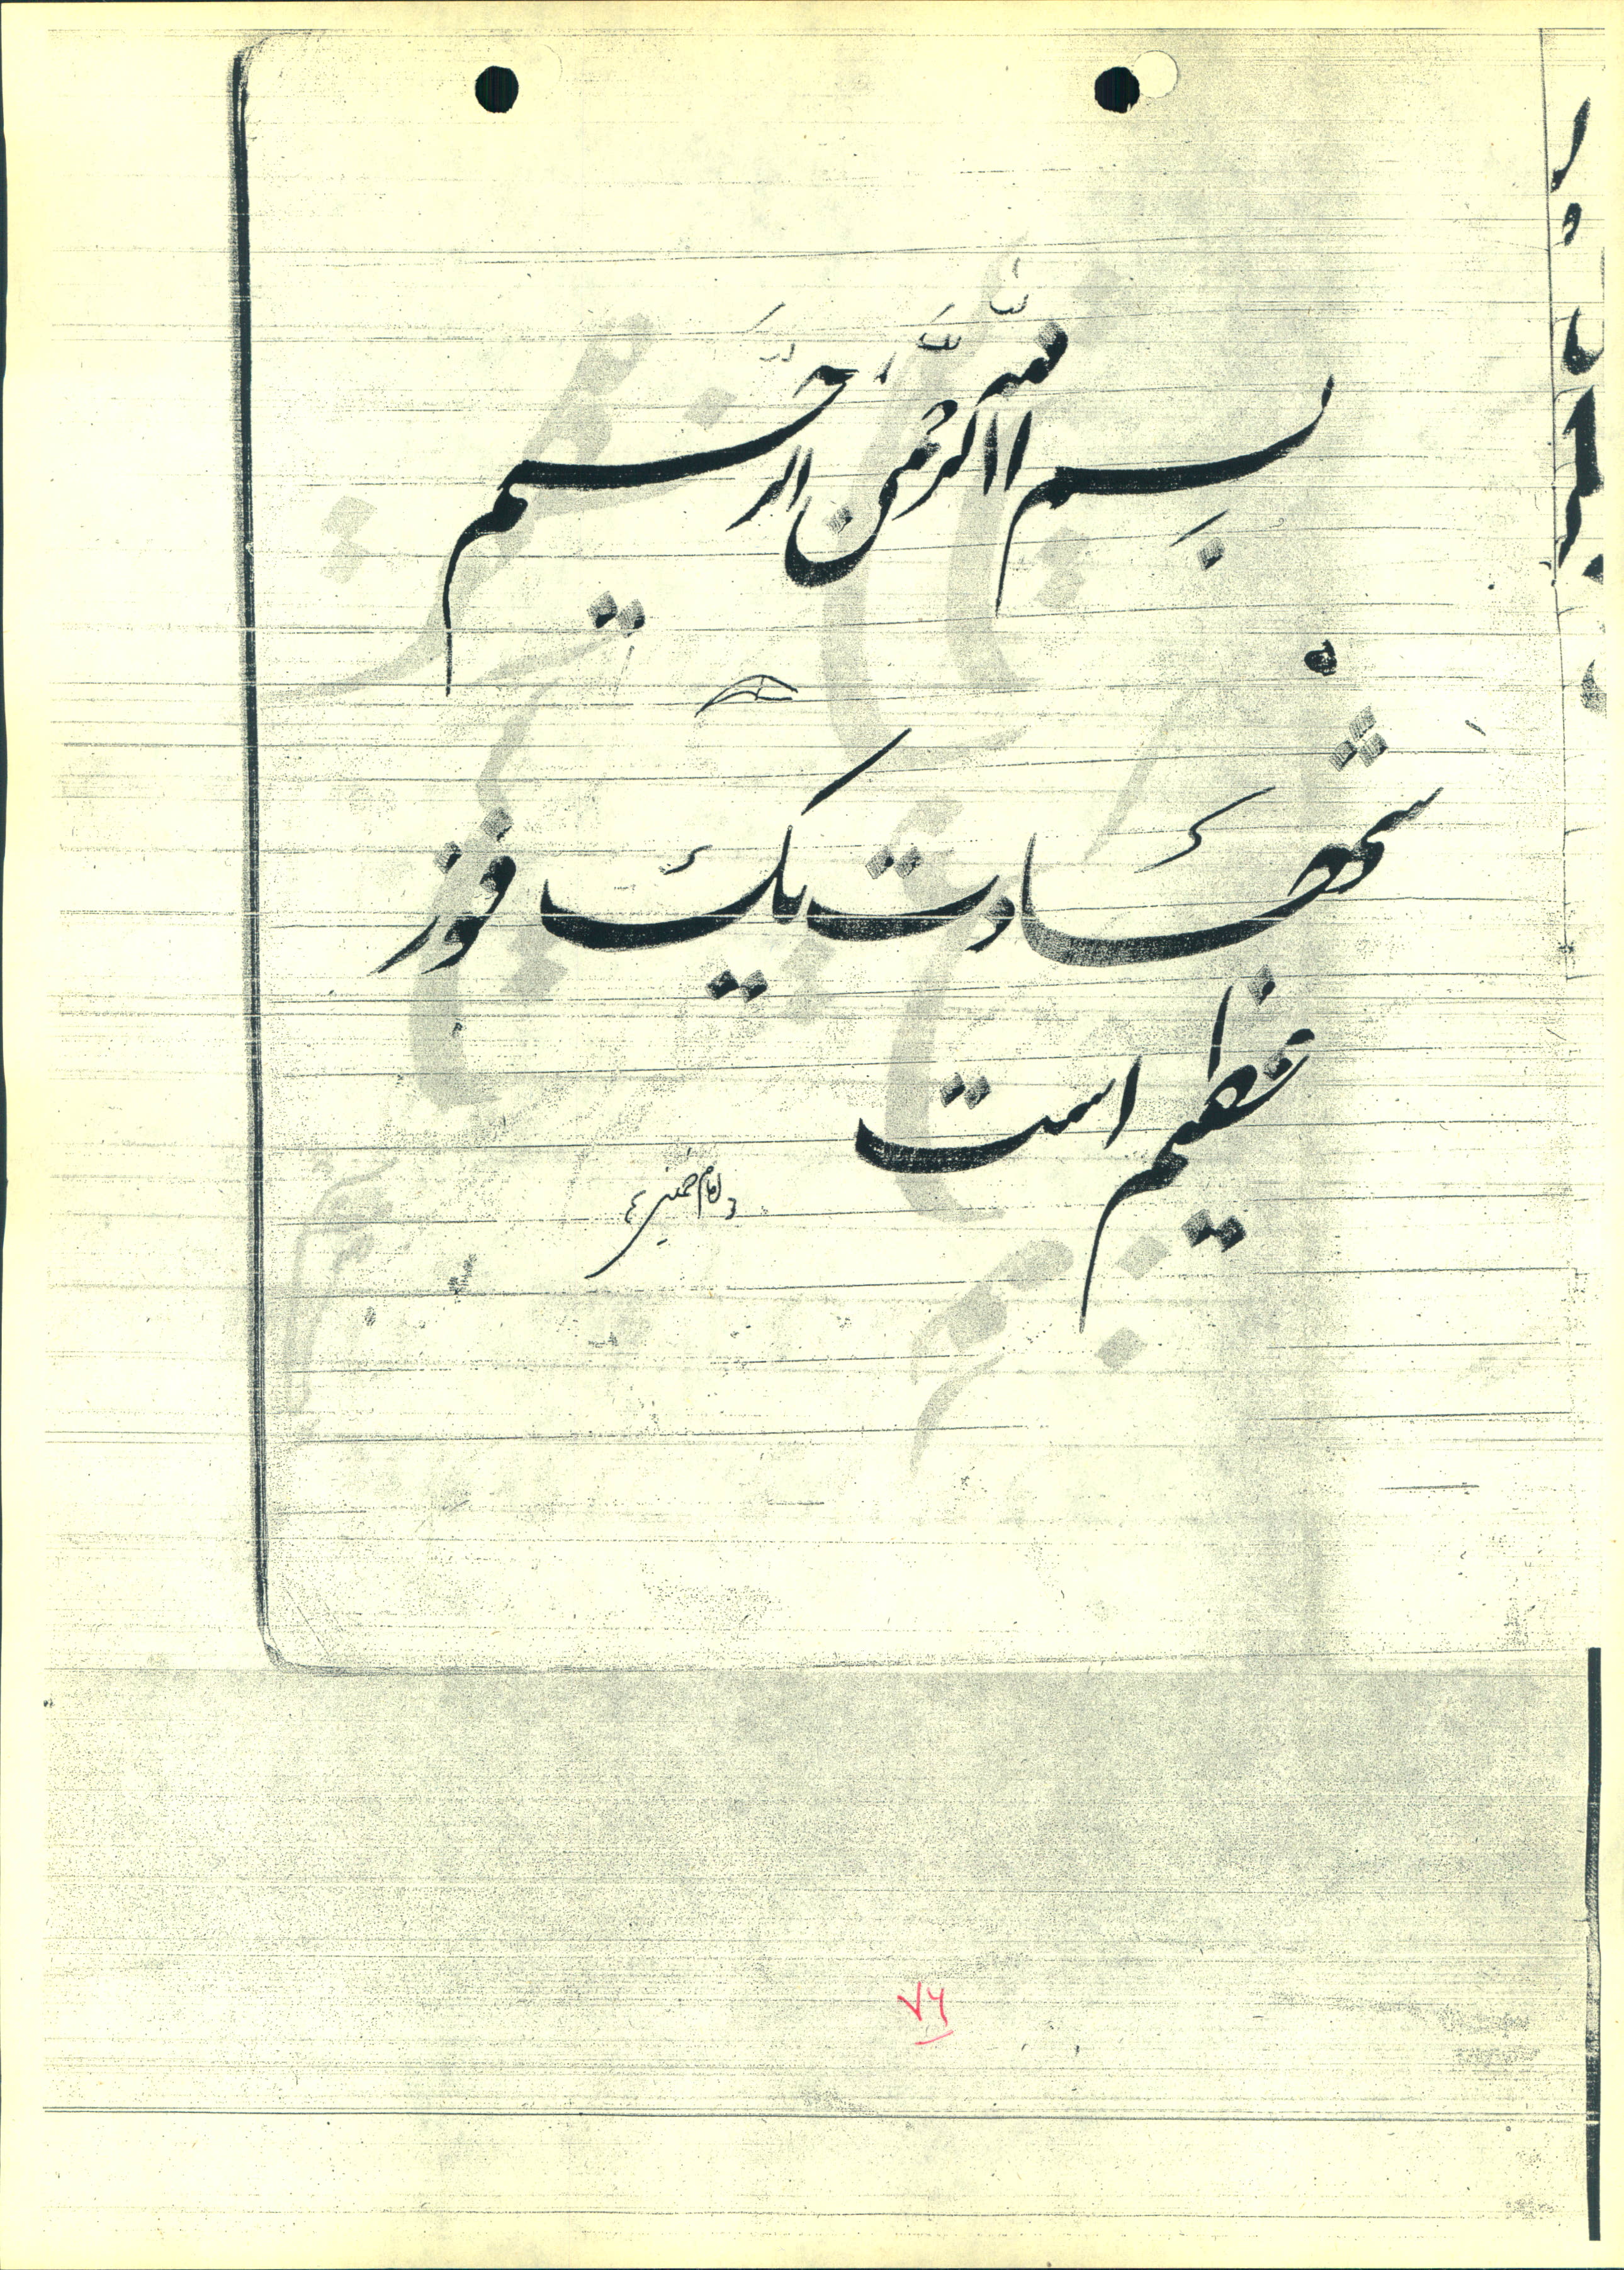 بِسم الله الرَّحمٰن الرَّحیم
شهادت یک فوز
عظیم است
«امام خمینی»
۷۶